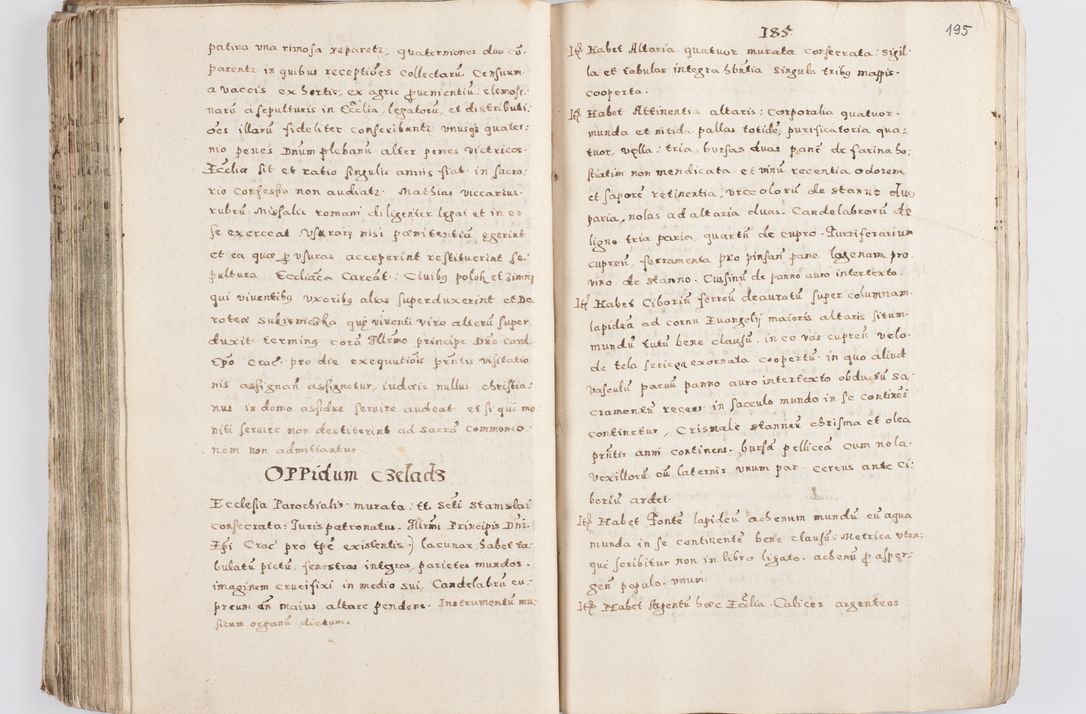 patina una rimosa reparetr, quaterniones duo cõ:
parentr in quibus receptiões collectarũ. Censuum
a vaccis ex hortis: ex agris ꝓuenientiũ: elemosi:
narũ a sepulturis in Ecclia, legatorũ, et distributi:
ões illarũ fideliter conscribantr unusqz quater:
nio penes Dnum plebanũ alter penes victricos
Ecclie sit et ratio singulis annis fiat. in sacra:
rio confessio non audiatr. Mathias viccarius
rubrũ Missalis romani diligenter legat et in es
se exerceat. Usurarij nisi pœnitentiã egerint
et ea quæ ꝓ usuras acceperint restituerint se:
pultura Eccliãca Careãt: Civibg poloh et Zimny
qui viventibg uxoribg alias superduxerint et Do:
rotea Sukiennicska quę viventi viro alterũ super
duxit terming corã Illrmo principe Dño Card
Epo Crac: pro die exequutiõis pñtis visitatio
nis assignañ assignetur, iudæis nullus christia:
nus in domo assidue servire audeat et si qui mo:
niti servire non destiterint ad sacrã commonio:
nem non admittantur.
OPPidum Czeladz
Ecclesia Parochialis. murata: tt. Scti Stanislai
consecrata: Juris patronatus. Illrmi Principis Dni
Epi Crac pro tpẽ existentis: lacunar habet ta:
bulatũ pictũ, fenestras integras parietes mundos.
imaginem crucifixi in medio sui, Candelabrũ cu:
preum añ maius altare pendens. Instrumentũ mu:
sicum organũ dictum.
185
195
Itẽ Habet Altaria quatuor murata consecrata: sigil:
la et tabulas integra hñtia singula tribg mappis.
cooperta.
Itẽ Habet Attinentia altaris: Corporalia quatuor.
munda et nitida. pallas totidẽ, purificatoria qua:
tuor, vella: tria, bursas duas panẽ de farina ho:
stiatim non mendicata et vinũ recentia odorem
et saporẽ retinentia, urceolorũ de stanno duo
paria, nolas ad altaria duas. Candelabrorũ de
ligno tria paria, quartũ de cupro. Turriferarium
cupreũ, ferramenta pro pinsañ pane. lagenam pro
vino de stanno. Cussinũ de panno auro intertexto.
Itẽ Habet Ciboriũ ferreũ deauratũ super columnam
lapideã ad cornu Evangelij maioris altaris situm.
mundũ tutũ bene clausũ. in eo vas cupreũ velo.
de tela sericea exornata coopertũ in quo aliud
vasculũ parvũ panno auro intertexto obductũ sa:
cramentũ recens in sacculo mundo in se continẽs
continetur, Crismale stanneũ chrisma et olea
pñtis anni continens. bursã pelliceã cum nola.
vexillorũ cũ laternis unum par. cereus ante ci:
boriũ ardet
Itẽ Habet Fontẽ lapideũ achenum mundũ cũ aqua
munda in se continentẽ bene clausũ: Metrica utra:
que scribitur non in libro ligato. achenũ ꝓ asper:
geñ populo. unum.
Itẽ Habet Argentũ hæc Ecclia. Calices argenteos